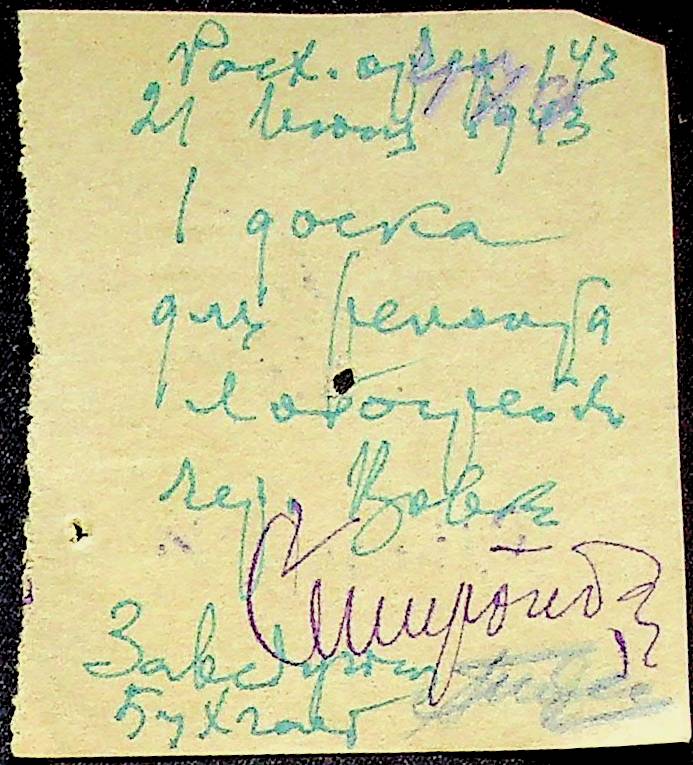 Расх. ордер 143
21 Июня 1943
1 доска
для ремонта
лобогрейки
чер. Вовк
Смирнов
Завед
Бухгалт